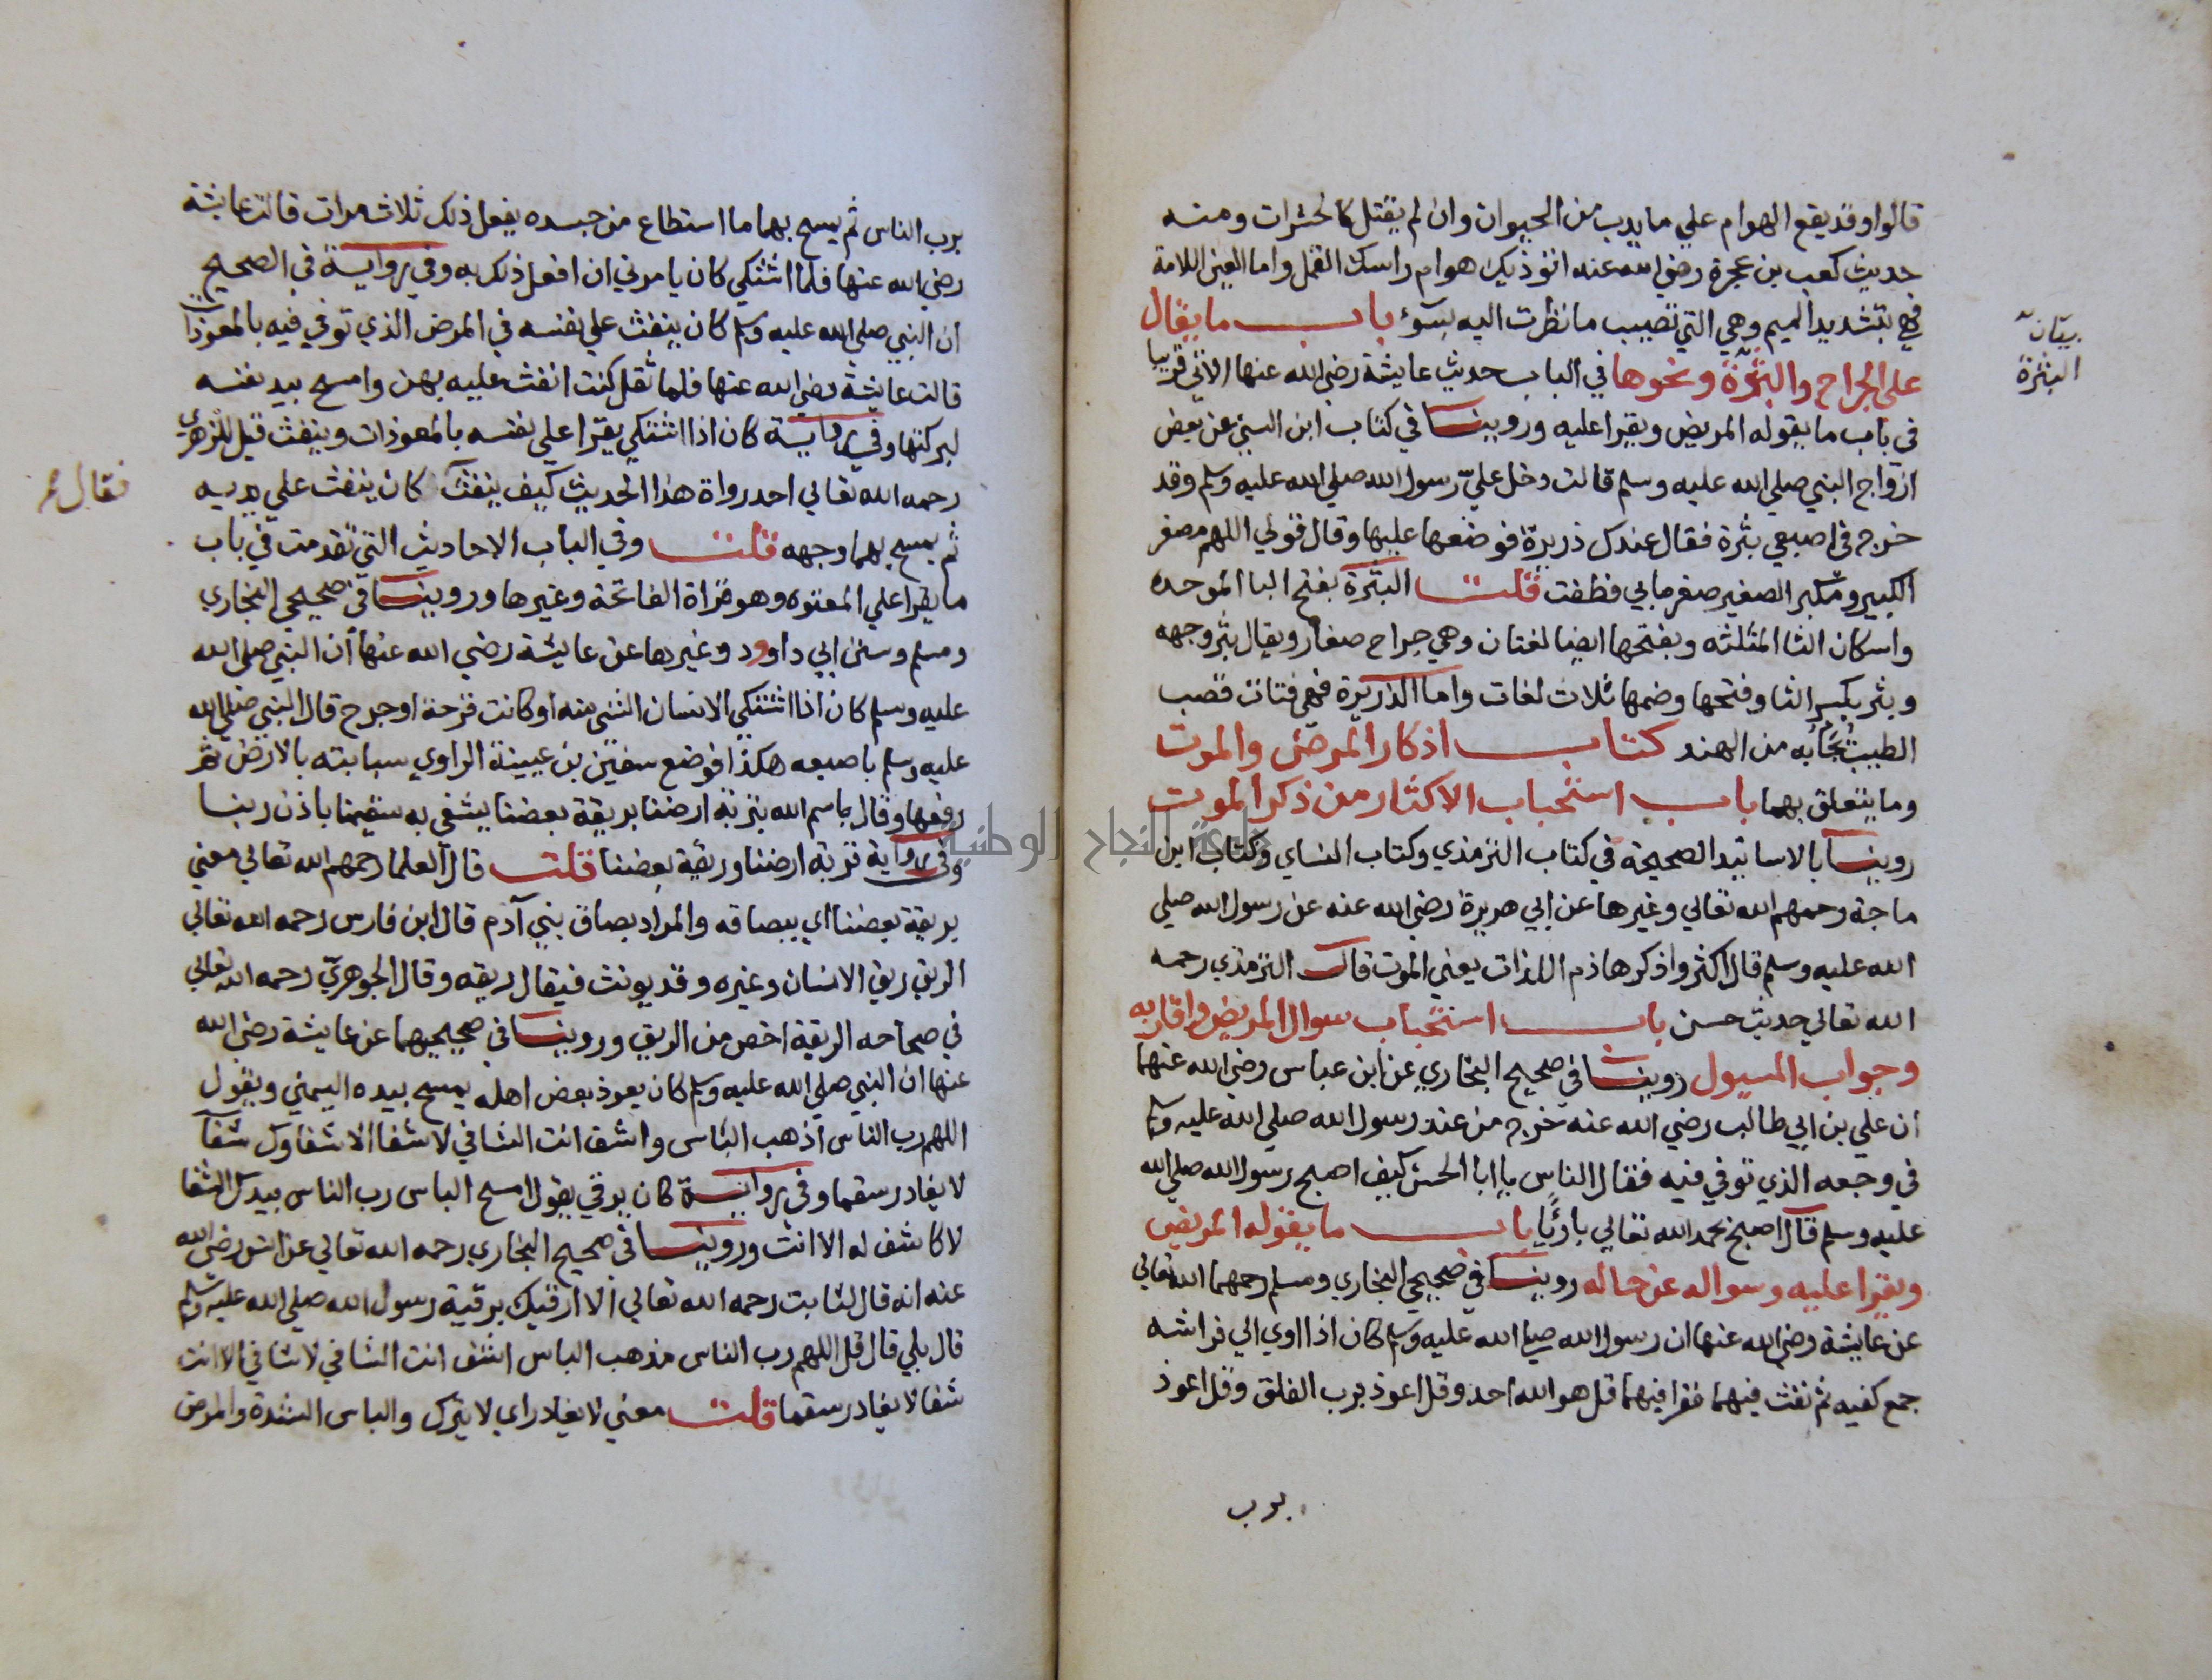 قالوا وقد يقع الهوام علي ما يدب من الحيوان وان لم يقتل كالحشرات ومنه
حديث كعب بن عجرة رضي الله عنه اتوذيك هوام راسك القمل واما العين اللامة
فهي بتشديد الميم وهي التي تصيب ما نظرت اليه بسوء باب ما يقال
علي الجراح والبثرة ونحوها في الباب حديث عايشة رضي الله عنها الاتي قريبا
في باب ما يقوله المريض ويقرا عليه وروينا في كتاب ابن السني عن بعض
ازواج النبي صلي الله عليه وسلم قالت دخل عليّ رسول الله صلي الله عليه وسلم وقد
خرج في اصبعي بثرة فقال عندك ذريرة فوضعها عليها وقال قولي اللهم مصغر
الكبير ومكبر الصغير صغر ما بي فطفت قلت البثرة بفتح البا الموحده
واسكان الثا المثلثه وبفتحها ايضا لغتان وهي جراح صغار ويقال بثر وجهه
وبثر بكسر الثا وفتحها وضمها ثلاث لغات واما الذريرة فهي فتات قصب
الطيب يُجَابُه من الهند كتاب اذكار المرضى والموت
وما يتعلق بهما باب استحباب الاكثار من ذكر الموت
روينا بالاسانيد الصحيحة في كتاب الترمذي وكتاب النساي وكتاب ابن
ماجة رحمهم الله تعالي وغيرها عن ابي هريرة رضي الله عنه عن رسول الله صلي
الله عليه وسلم قال اكثروا ذكر هاذم اللذات يعني الموت قال الترمذي رحمه
الله تعالي حديث حسن باب استحباب سوال المريض واقاربه
وجواب المسيول روينا في صحيح البخاري عن ابن عباس رضي الله عنهما
ان علي بن ابي طالب رضي الله عنه خرج من عند رسول الله صلي الله عليه وسلم
في وجعه الذي توفي فيه فقال الناس يا ابا الحسن كيف اصبح رسول الله صلي الله
عليه وسلم قال اصبح بحمد الله تعالي باريًا باب ما يقوله المريض
ويقرا عليه وسواله عن حاله روينا في صحيحي البخاري ومسلم رحمهما الله تعالي
عن عايشة رضي الله عنها ان رسول الله صلي الله عليه وسلم كان اذا اوي الي فراشه
جمع كفيه ثم نفث فيهما فقرا فيهما قل هو الله احد وقل اعوذ برب الفلق وقل اعوذ
برب
بيان
البثرة
برب الناس ثم يمسح بهما ما استطاع من جسده يفعل ذلك ثلاث مرات قالت عايشة
رضي الله عنها فلما اشتكي كان يامرني ان افعل ذلك به وفي رواية في الصحيح
ان النبي صلي الله عليه وسلم كان ينفث علي نفسه في المرض الذي توفي فيه بالمعوذات
قالت عايشة رضي الله عنها فلما ثقل كنت انفث عليه بهن وامسح بيد نفسه
لبركتها وفي رواية كان اذا اشتكي يقرا علي نفسه بالمعوذات وينفث قيل للزهري
رحمه الله تعالي احد رواة هذا الحديث كيف ينفث كان ينفث علي يديه
ثم يمسح بهما وجهه قلت وفي الباب الاحاديث التي تقدمت في باب
ما يقرا علي المعتوه وهو قراة الفاتحة وغيرها وروينا في صحيحي البخاري
ومسلم وسنن ابي داوود وغيرها عن عايشة رضي الله عنها أن النبي صلي الله
عليه وسلم كان اذا اشتكي الانسان الشي منه او كانت قرحة او جرح قال النبي صلي الله
عليه وسلم باصبعه هكذا فوضع سفين بن عيينة الراوي سبابته بالارض ثم
رفعها وقال باسم الله تربة ارضنا بريقة بعضنا يشفي به سقيمنا باذن ربنا
وفي رواية تربة ارضنا وريقة بعضنا قلت قال العلما رحمهم الله تعالي معني
بريقة بعضنا اي ببصاقه والمراد بصاق بني آدم قال ابن فارس رحمه الله تعالي
الريق ريق الانسان وغيره وقد يونث فيقال ريقه وقال الجوهريّ رحمه الله تعالي
في صحاحه الريقة اخص من الريق وروينا في صحيحيهما عن عايشة رضي الله
عنها ان النبي صلي الله عليه وسلم كان يعوذ بعض اهله يمسح بيده اليمني ويقول
اللهم رب الناس أذهب الباس واشف انت الشافي لا شفا الا شفاوك شفآ
لا يغادر سقما وفي رواية كان يرقي يقول امسح الباس رب الناس بيدك الشفا
لا كاشف له الا انت وروينا في صحيح البخاري رحمه الله تعالي عن انس رضي الله
عنه انه قال لثابت رحمه الله تعالي ألا ارقيك برقية رسول الله صلي الله عليه وسلم
قال بلي قال قل اللهم رب الناس مذهب الباس اشف انت الشافي لا شافي الا انت
شفا لا يغادر سقما قلت معني لا يغادر اي لا يترك والباس الشدة والمرض
فقال
جامعة النجاح الوطنية